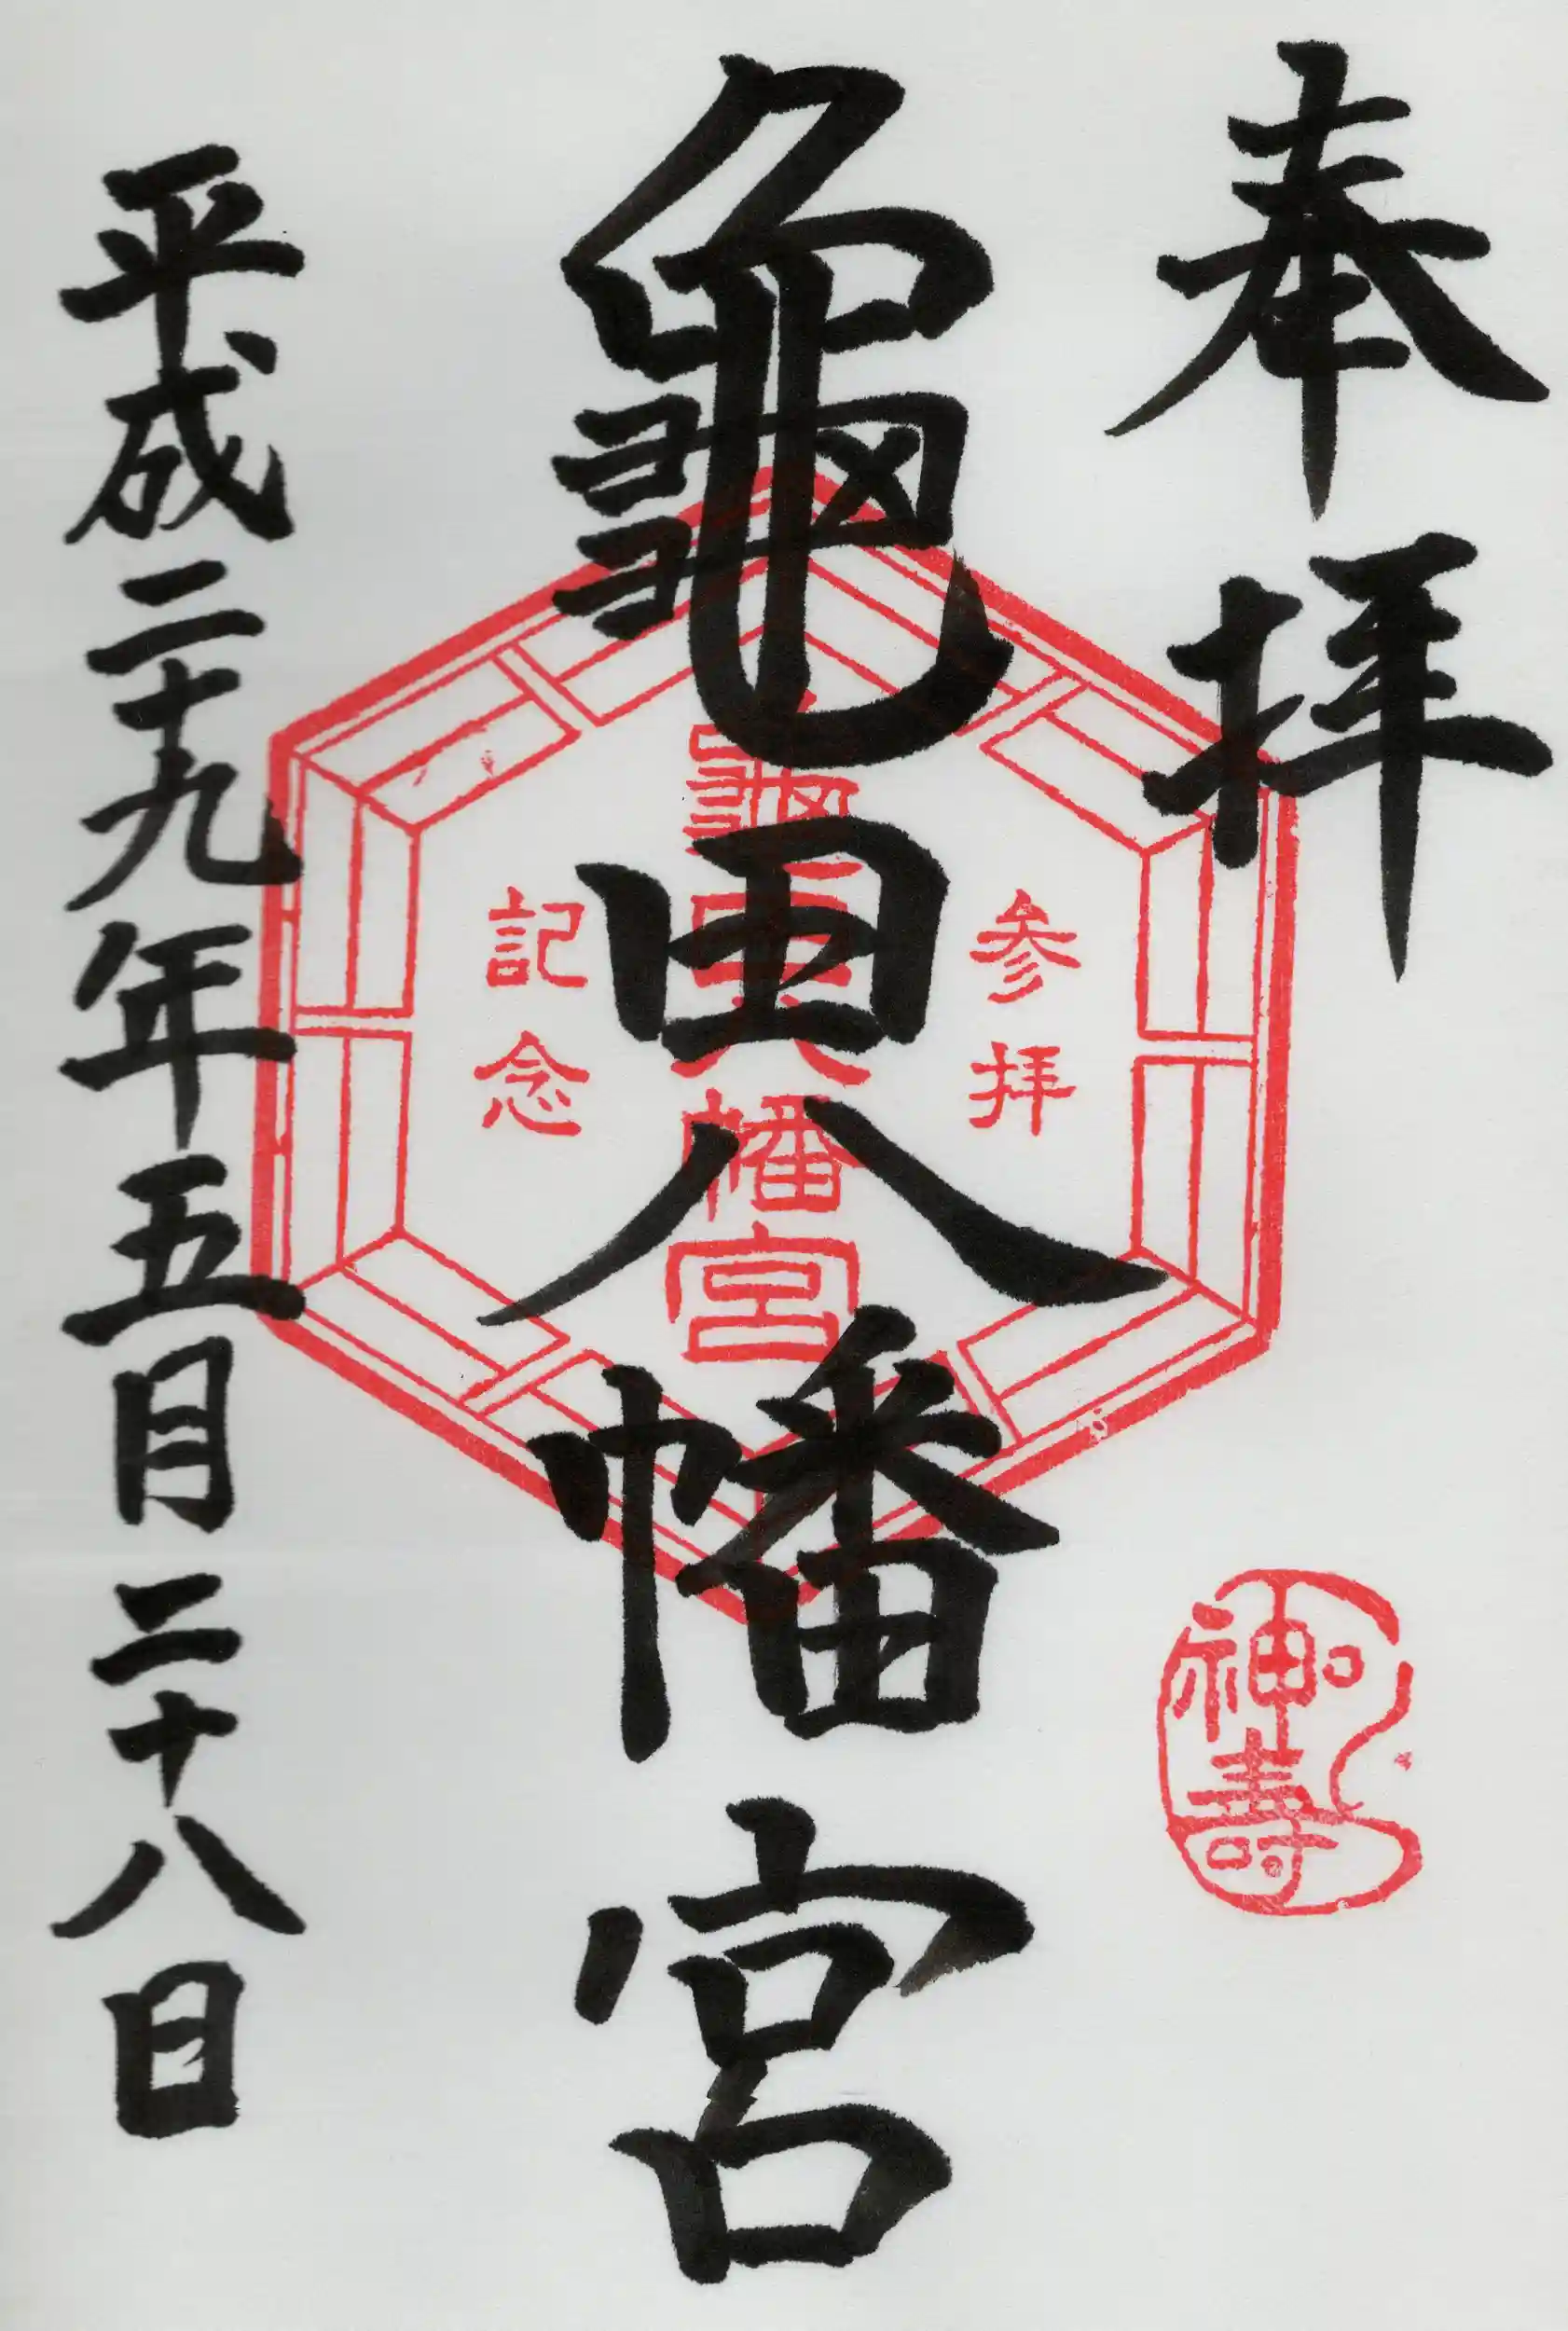 奉拝
神壽
参拝
龜田八幡宮
龜田八幡宮
記念
平成二十九年五月二十八日